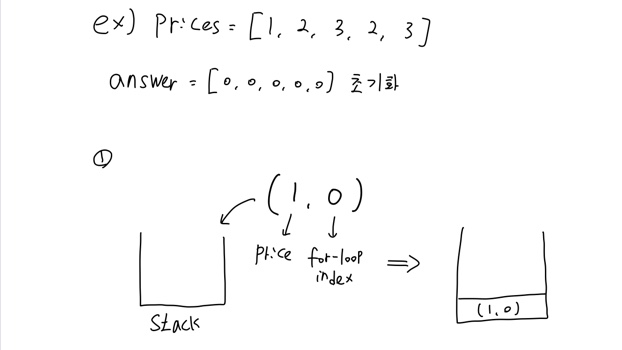 ex) prices = [1, 2, 3, 2, 3]
answer = [0, 0, 0, 0, 0] 초기화
①
(1, 0)
price for-loop
index
Stack
(1, 0)